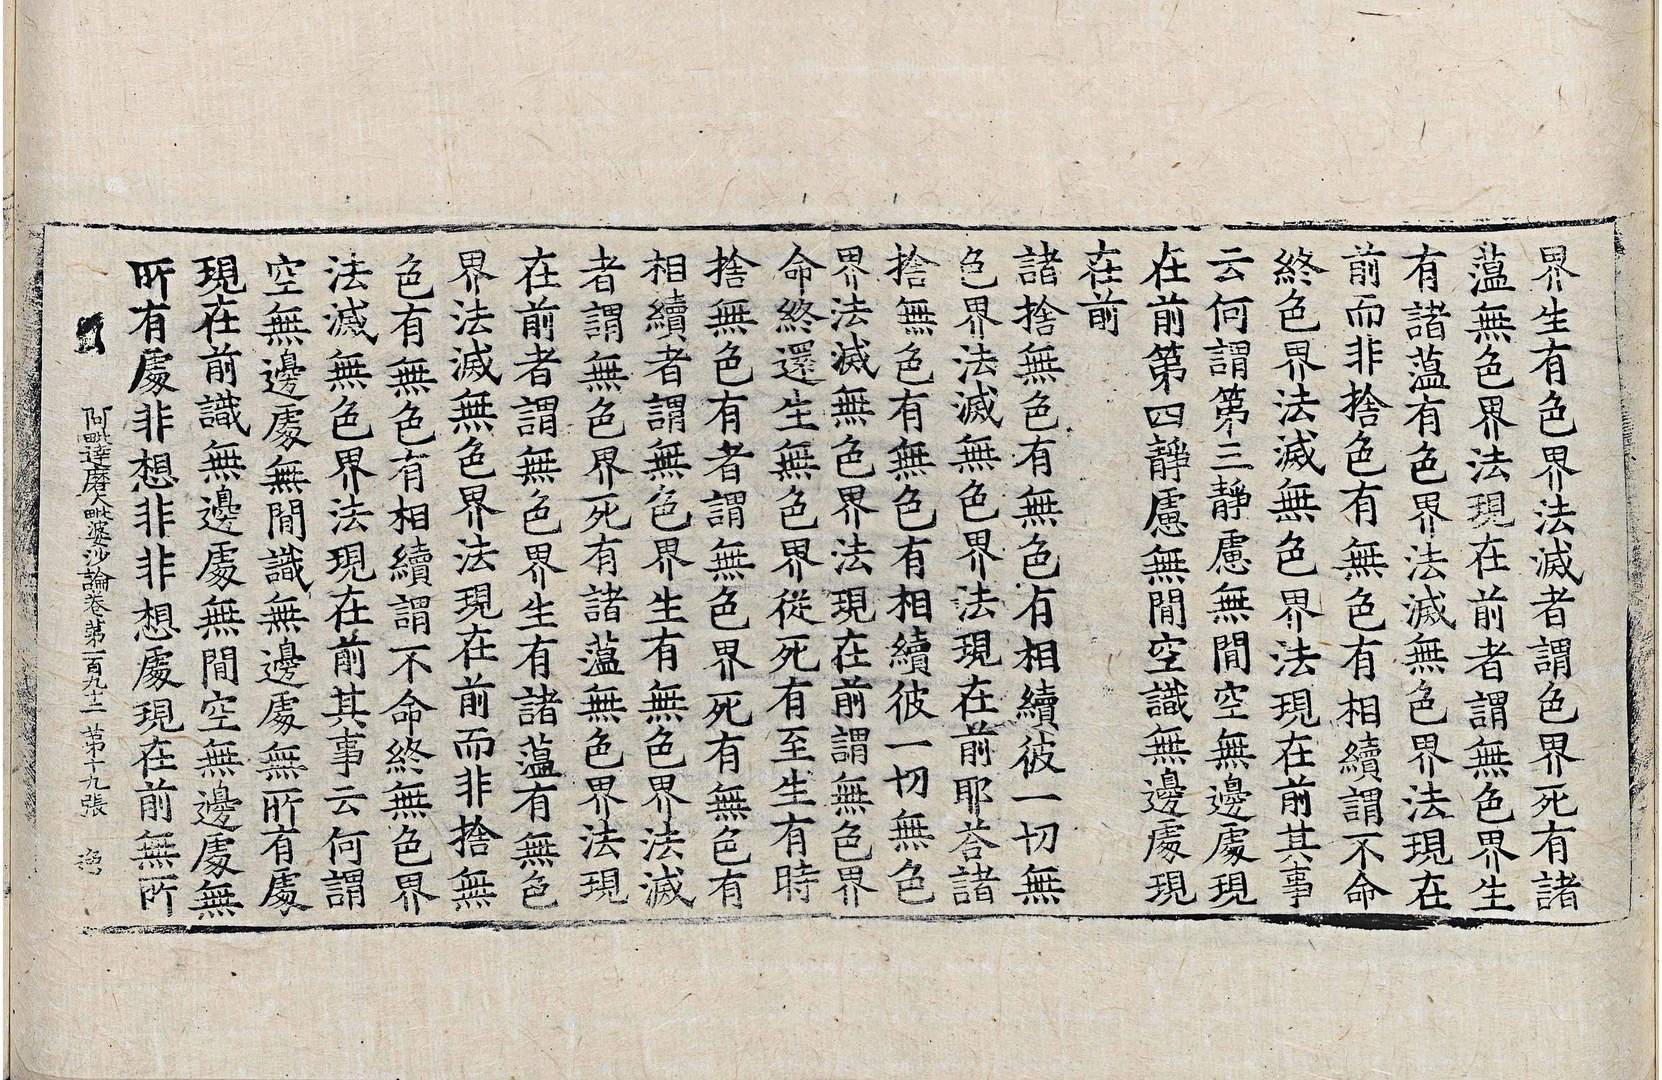 界生有色界法滅者謂色界死有諸
薀無色界法現在前者謂無色界生
有諸薀有色界法滅無色界法現在
前而非捨色有無色有相續謂不命
終色界法滅無色界法現在前其事
云何謂第三靜慮無閒空無邊處現
在前第四靜慮無閒空識無邊處現
在前
諸捨無色有無色有相續彼一切無
色界法滅無色界法現在前耶荅諸
捨無色有無色有相續彼一切無色
界法滅無色界法現在前謂無色界
命終還生無色界從死有至生有時
捨無色有者謂無色界死有無色有
相續者謂無色界生有無色界法滅
者謂無色界死有諸薀無色界法現
在前者謂無色界生有諸薀有無色
界法滅無色界法現在前而非捨無
色有無色有相續謂不命終無色界
法滅無色界法現在前其事云何謂
空無邊處無閒識無邊處無所有處
現在前識無邊處無閒空無邊處無
所有處非想非非想處現在前無所
阿毗達磨大毗婆沙論卷第一百九十二 第十九張